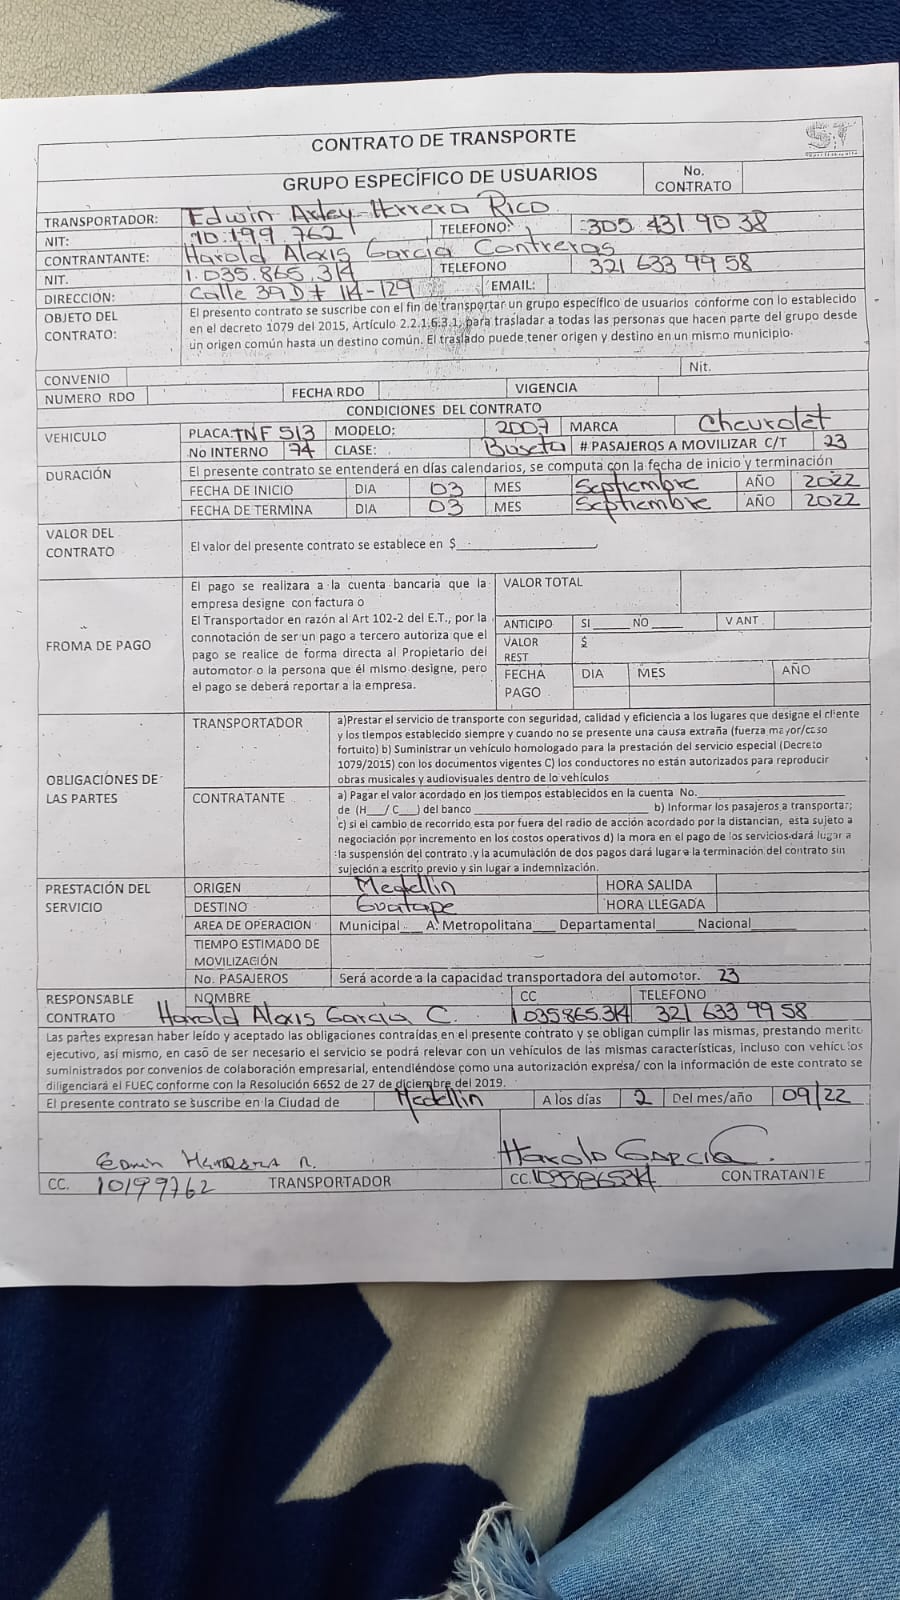 CONTRATO DE TRANSPORTE
GRUPO ESPECÍFICO DE USUARIOS No. CONTRATO
TRANSPORTADOR: Edwin Arley Herrera Rico
NIT: 10.199 762 TELEFONO: 305 431 90 38
CONTRATANTE: Harold Alexis Garcia Contreras
NIT. 1.035.865.314 TELEFONO 321 633 99 58
DIRECCIÓN: Calle 39D # 114-129 EMAIL:
OBJETO DEL CONTRATO: El presento contrato se suscribe con el fin de transportar un grupo específico de usuarios conforme con lo establecido
en el decreto 1079 del 2015, Artículo 2.2.1.6.3.1, para trasladar a todas las personas que hacen parte del grupo desde
un origen común hasta un destino común. El traslado puede tener origen y destino en un mismo municipio.
CONVENIO Nit.
NUMERO RDO FECHA RDO VIGENCIA
CONDICIONES DEL CONTRATO
VEHICULO PLACA: TNF 513 MODELO: 2007 MARCA Chevrolet
No INTERNO 74 CLASE: Buseta # PASAJEROS A MOVILIZAR C/T 23
DURACIÓN El presente contrato se entenderá en días calendarios, se computa con la fecha de inicio y terminación
FECHA DE INICIO DIA 03 MES Septiembre AÑO 2022
FECHA DE TERMINA DIA 03 MES Septiembre AÑO 2022
VALOR DEL CONTRATO El valor del presente contrato se establece en $
FROMA DE PAGO
El pago se realizara a la cuenta bancaria que la
empresa designe con factura o
El Transportador en razón al Art 102-2 del E.T., por la
connotación de ser un pago a tercero autoriza que el
pago se realice de forma directa al Propietario del
automotor o la persona que él mismo designe, pero
el pago se deberá reportar a la empresa.
VALOR TOTAL
ANTICIPO SI NO V ANT
VALOR REST $
FECHA PAGO DIA MES AÑO
OBLIGACIONES DE LAS PARTES
TRANSPORTADOR a)Prestar el servicio de transporte con seguridad, calidad y eficiencia a los lugares que designe el cliente
y los tiempos establecido siempre y cuando no se presente una causa extraña (fuerza mayor/caso
fortuito) b) Suministrar un vehículo homologado para la prestación del servicio especial (Decreto
1079/2015) con los documentos vigentes C) los conductores no están autorizados para reproducir
obras musicales y audiovisuales dentro de lo vehículos
CONTRATANTE a) Pagar el valor acordado en los tiempos establecidos en la cuenta No.
de (H__/ C__) del banco b) Informar los pasajeros a transportar;
c) si el cambio de recorrido esta por fuera del radio de acción acordado por la distancian, esta sujeto a
negociación por incremento en los costos operativos d) la mora en el pago de los servicios dará lugar a
la suspensión del contrato y la acumulación de dos pagos dará lugar a la terminación del contrato sin
sujeción a escrito previo y sin lugar a indemnización.
PRESTACIÓN DEL SERVICIO
ORIGEN Medellin HORA SALIDA
DESTINO Guatape HORA LLEGADA
AREA DE OPERACIÓN Municipal___ A. Metropolitana___ Departamental___ Nacional___
TIEMPO ESTIMADO DE MOVILIZACIÓN
No. PASAJEROS Será acorde a la capacidad transportadora del automotor. 23
RESPONSABLE CONTRATO NOMBRE CC TELEFONO
Harold Alexis Garcia C. 1035865.314 321 633 99 58
Las partes expresan haber leído y aceptado las obligaciones contraídas en el presente contrato y se obligan cumplir las mismas, prestando merito
ejecutivo, así mismo, en casó de ser necesario el servicio se podrá relevar con un vehículos de las mismas características, incluso con vehículos
suministrados por convenios de colaboración empresarial, entendiéndose como una autorización expresa/ con la información de este contrato se
diligenciará el FUEC conforme con la Resolución 6652 de 27 de diciembre del 2019.
El presente contrato se suscribe en la Ciudad de Medellin A los días 2 Del mes/año 09/22
Edwin Herrera R. Harold Garcia.
CC. 10199762 TRANSPORTADOR CC. 1035865314 CONTRATANTE